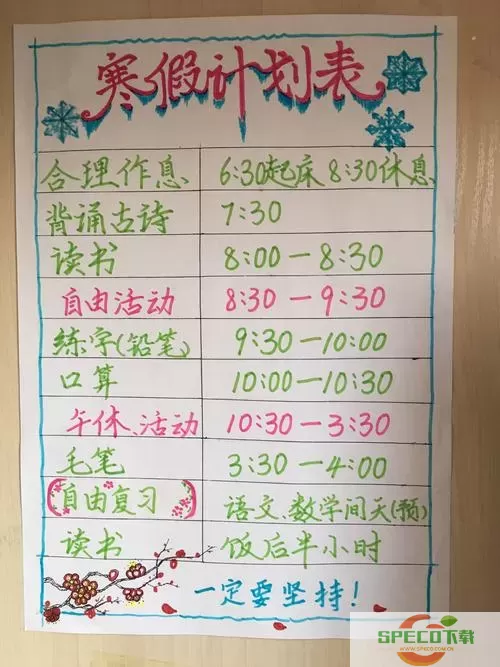 寒假计划表
合理作息 6:30起床 8:30休息
背诵古诗 7:30
读书 8:00—8:30
自由活动 8:30—9:30
练字(铅笔) 9:30—10:00
口算 10:00—10:30
午休、活动 10:30—3:30
毛笔 3:30—4:00
(自由复习) 语文、数学间天(预)
读书 饭后半小时
一定要坚持!
SPECO下载
WWW.SPECO.COM.CN